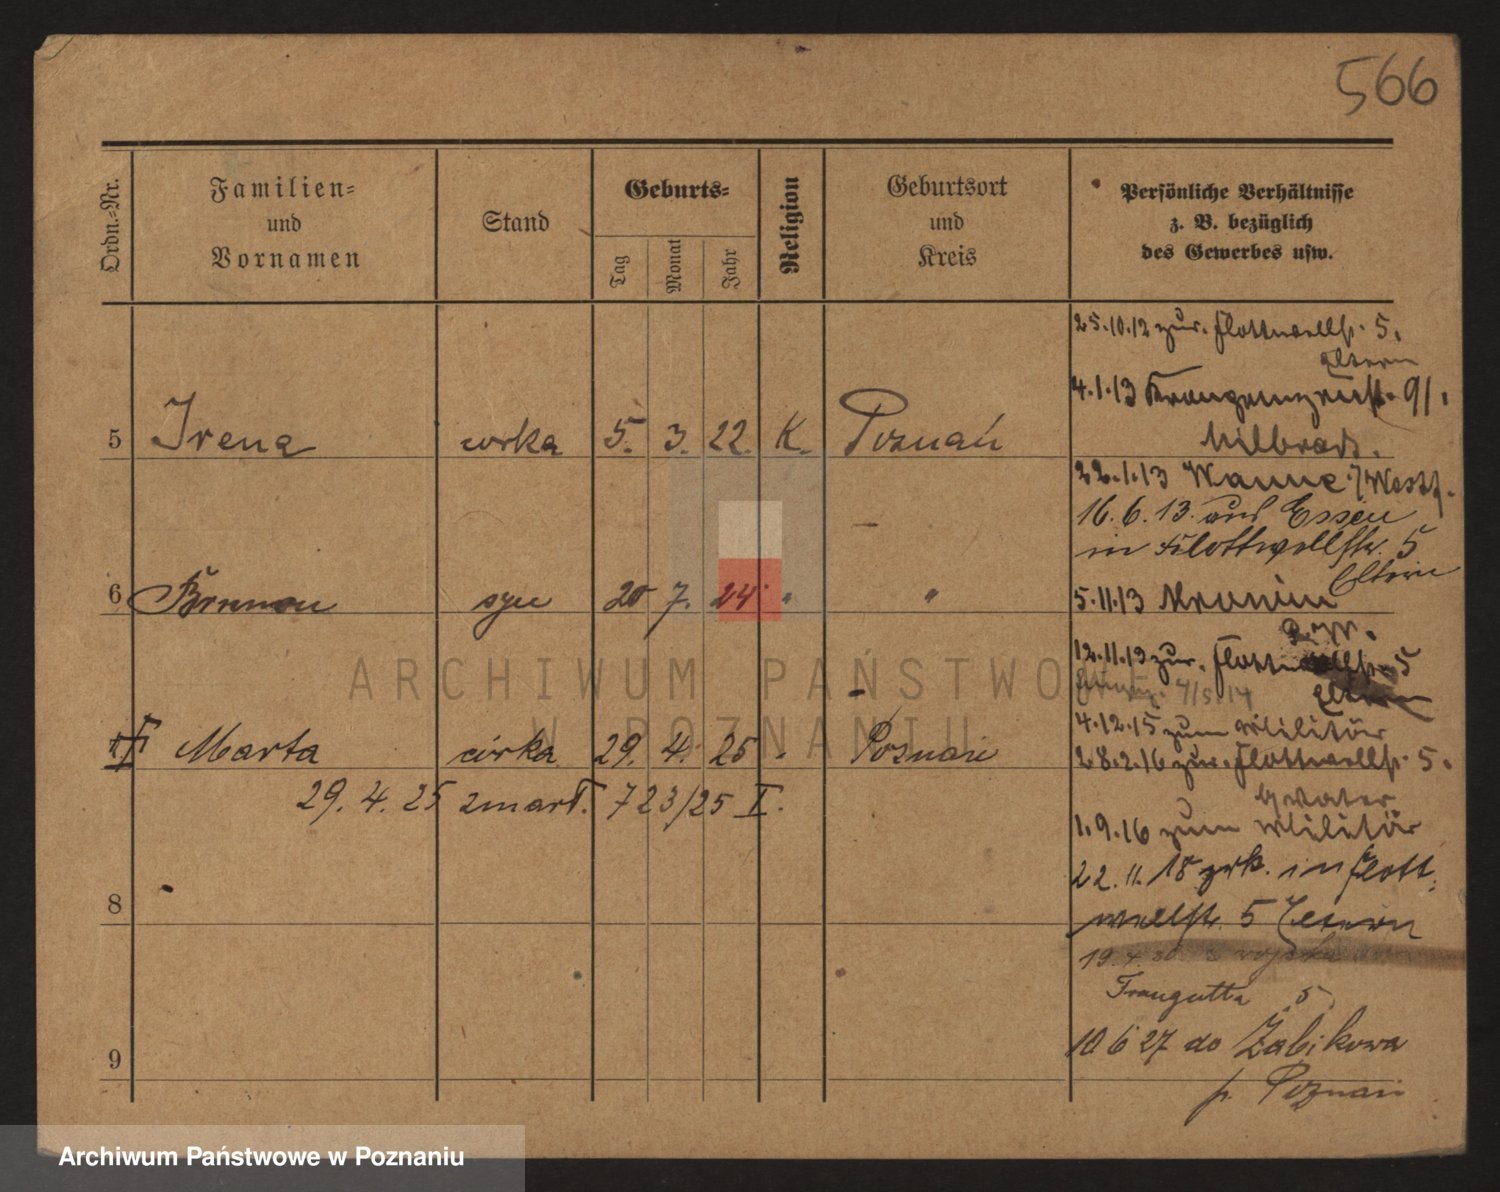 566
Ordn.=Nr.
Familien=
und
Vornamen
Stand
Geburts=
Tag
Monat
Jahr
Religion
Geburtsort
und
Kreis
Persönliche Verhältnisse
z. B. bezüglich
des Gewerbes usw.
5 Irena córka 5. 3. 22. K. Poznań
6 Brunon syn 20 7. 24 " "
Marta córka 29. 4. 25 " Poznań
29. 4. 25 zmarł. 723/25 I.
8
9
25.10.12 zur. Flottwellst. 5.
Eltern
4.1.13 91.
22.1.13 Wanne /Westf.
16.6.13. aus Essen
in Flottwellstr. 5
Eltern
5.11.13
12.11.13 zur. Flottwellst. 5
Eltern
4.12.15 zum Militär
28.2.16 zur. Flottwellst. 5.
1.9.16 zum Militär
22.11.18 zrk. in Flott
wellstr. 5 Eltern
19.4.20 z wojska
Traugutta 5
10 6 27 do Żabikowa
p. Poznań
ARCHIWUM PAŃSTWOWE
W POZNANIU
Archiwum Państwowe w Poznaniu